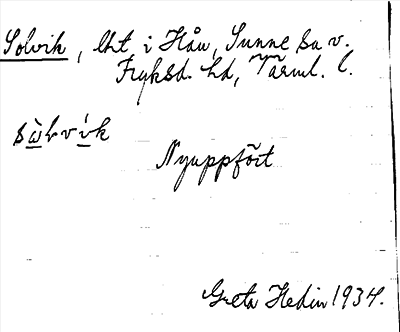 Solvik, lht i Håw, Sunne sn v.
Fryksd. hd, Värml. l.
sὼlvik
Nyuppfört
Greta Hedin 1934.